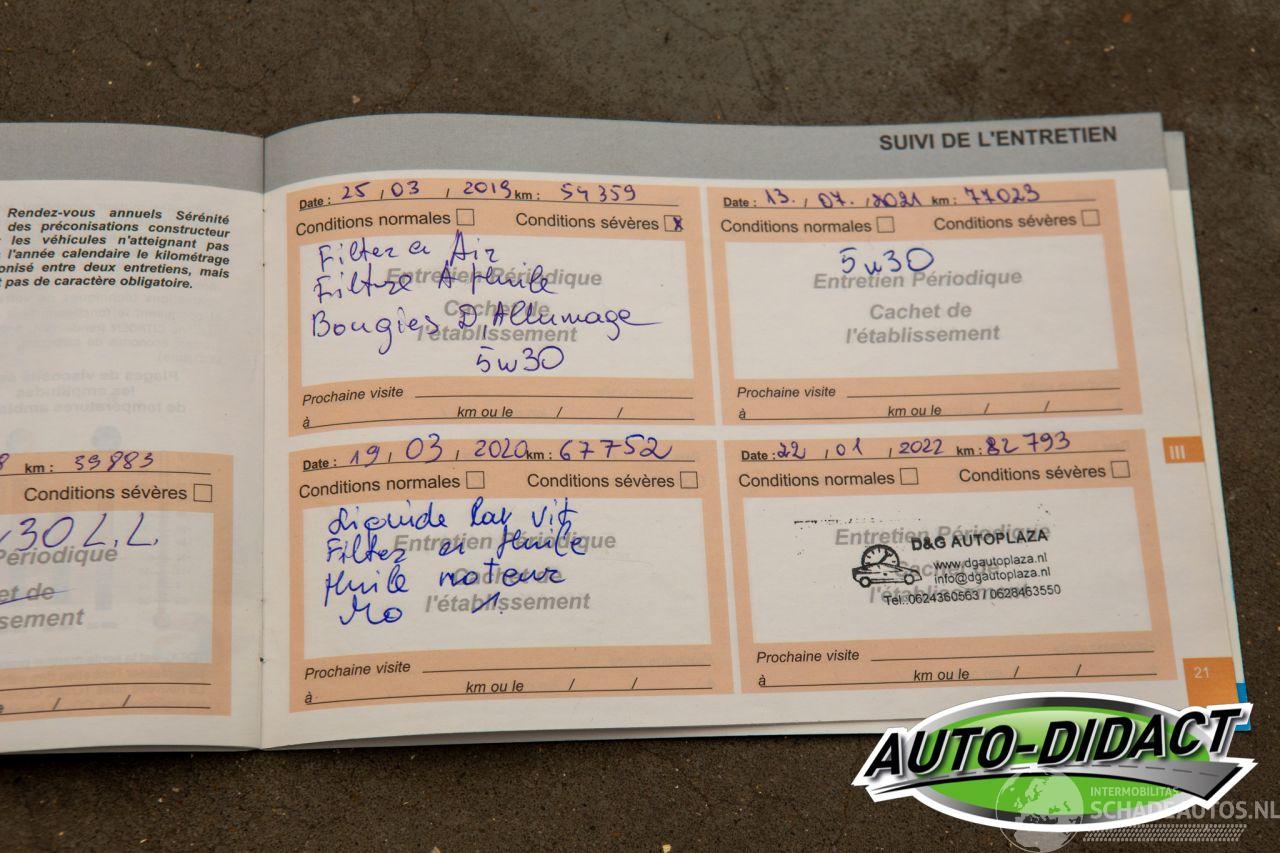 SUIVI DE L'ENTRETIEN
Rendez-vous annuels Sérénité
des préconisations constructeur
les véhicules n'atteignant pas
l'année calendaire le kilométrage
onisé entre deux entretiens, mais
t pas de caractère obligatoire.
8 km : 39883
Conditions sévères
30 L.L.
Périodique
et de
sement
Date : 25 / 03 / 2019 km : 54359
Conditions normales Conditions sévères x
Filter a Air
Filture A Huile
Bougies D'Allumage
5w30
Entretien Périodique
Cachet de
l'établissement
Prochaine visite
à km ou le / /
Date : 19 / 03 / 2020 km : 67752
Conditions normales Conditions sévères
Liquide Lav Vit
Filter a Huile
Huile moteur
Entretien Périodique
Cachet de
l'établissement
Prochaine visite
à km ou le / /
Date : 13. / 07. / 2021 km : 77023
Conditions normales Conditions sévères
5w30
Entretien Périodique
Cachet de
l'établissement
Prochaine visite
à km ou le / /
Date : 22 / 01 / 2022 km : 82793
Conditions normales Conditions sévères
Entretien Périodique
Cachet de
l'établissement
D&G AUTOPLAZA
www.dgautoplaza.nl
info@dgautoplaza.nl
Tel.:0624360563 / 0628463550
Prochaine visite
à km ou le / /
III
21
AUTO-DIDACT
INTERMOBILITAS
SCHADEAUTOS.NL